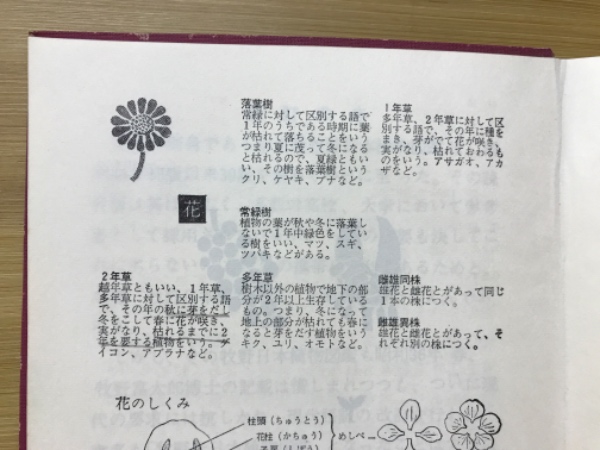 落葉樹
常緑に対して区別する語で
1年のうちである時期に葉
が枯れて落ちることをいう
つまり夏に茂って冬になる
と枯れるので、夏緑ともい
い、その樹を落葉樹という
クリ、ケヤキ、ブナなど。
1年草
多年草、2年草に対して区
別する語で、その年に種を
まき、芽がでて花が咲き、
実がなり、枯れておわるも
のをいう。アサガオ、アカ
ザなど。
花
常緑樹
植物の葉が秋や冬に落葉し
ないで1年中緑色をしてい
る樹をいい、マツ、スギ、
ツバキなどがある。
2年草
越年草ともいい、1年草、
多年草に対して区別する語
で、その年の秋に芽をだし
冬をこして春に花が咲き、
実がなり、枯れるまでに2
年を要する植物をいう。ダ
イコン、アブラナなど。
多年草
樹木以外の植物で地下の部
分が2年以上生存している
もの。つまり、冬になって
地上の部分が枯れても春に
なると芽をだす植物をいう
キク、ユリ、オモトなど。
雌雄同株
雄花と雌花とがあって同じ
1本の株につく。
雌雄異株
雄花と雌花とがあって、そ
れぞれ別の株につく。
花のしくみ
柱頭(ちゅうとう)
花柱(かちゅう)
めしべ